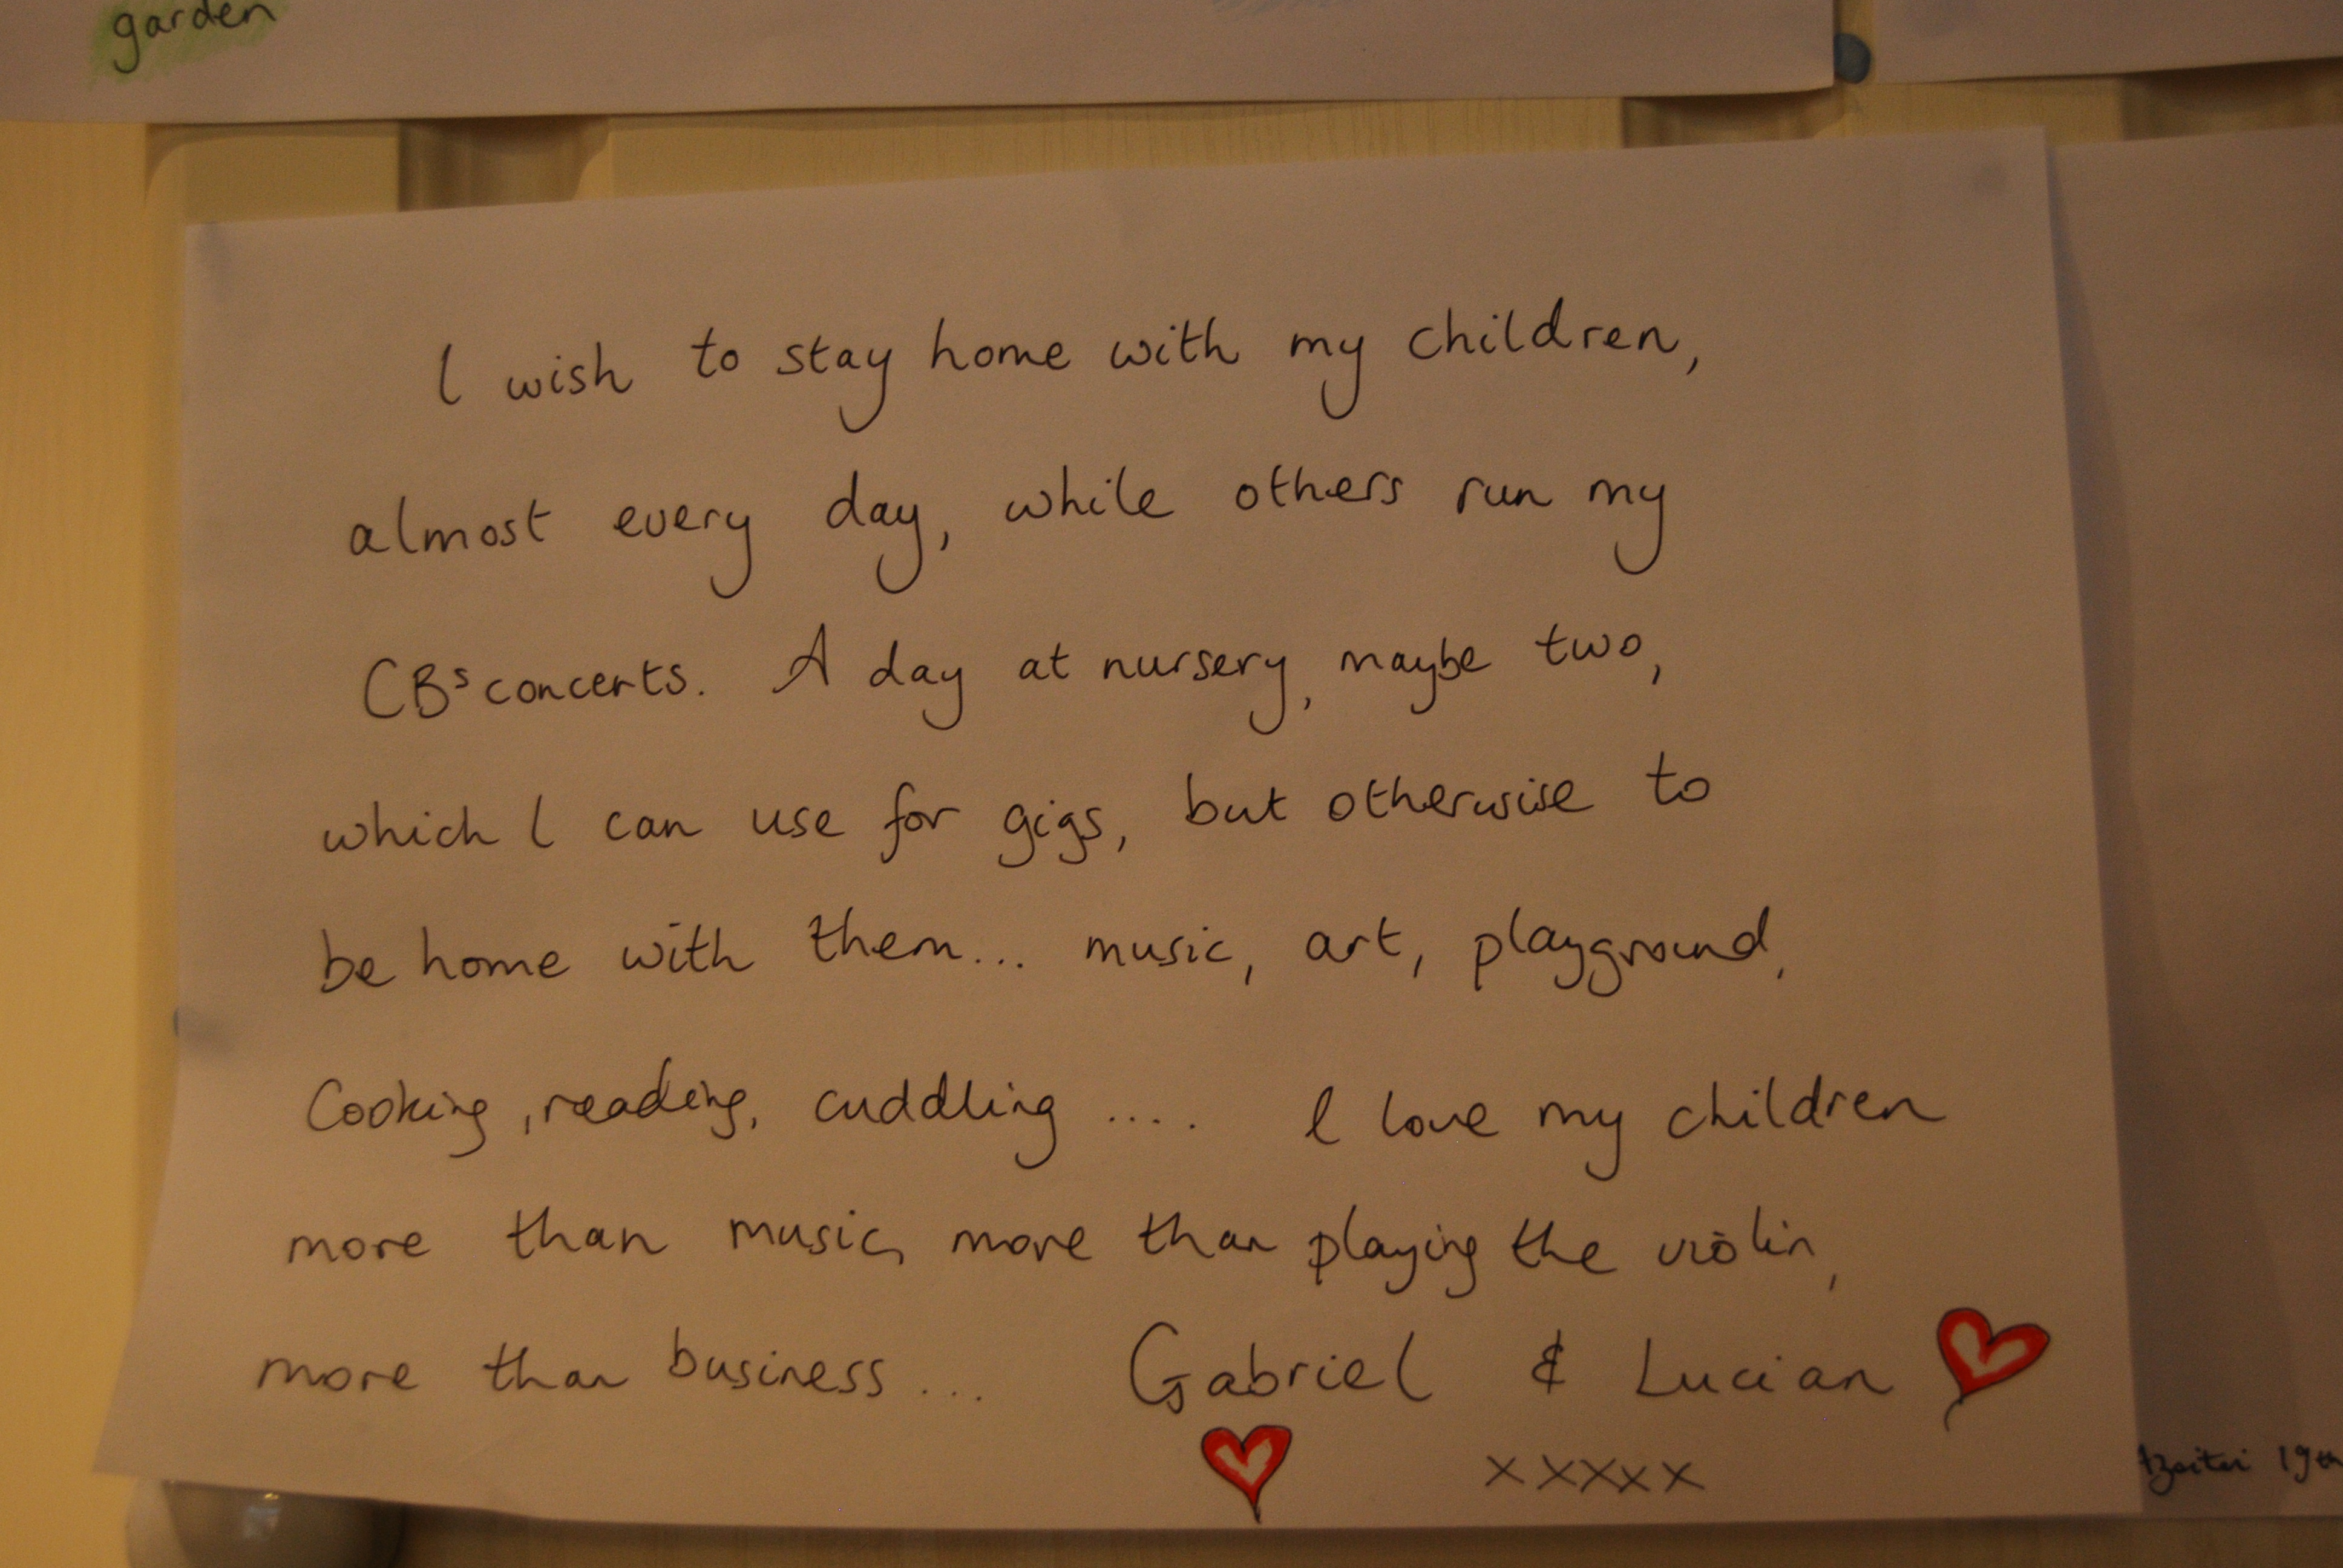 garden
I wish to stay home with my children,
almost every day, while others run my
CBs concerts. A day at nursery, maybe two,
which I can use for gigs, but otherwise to
be home with them... music, art, playground,
Cooking, reading, cuddling .... I love my children
more than music, more than playing the violin,
more than business ... Gabriel & Lucian
xxxxx
19th